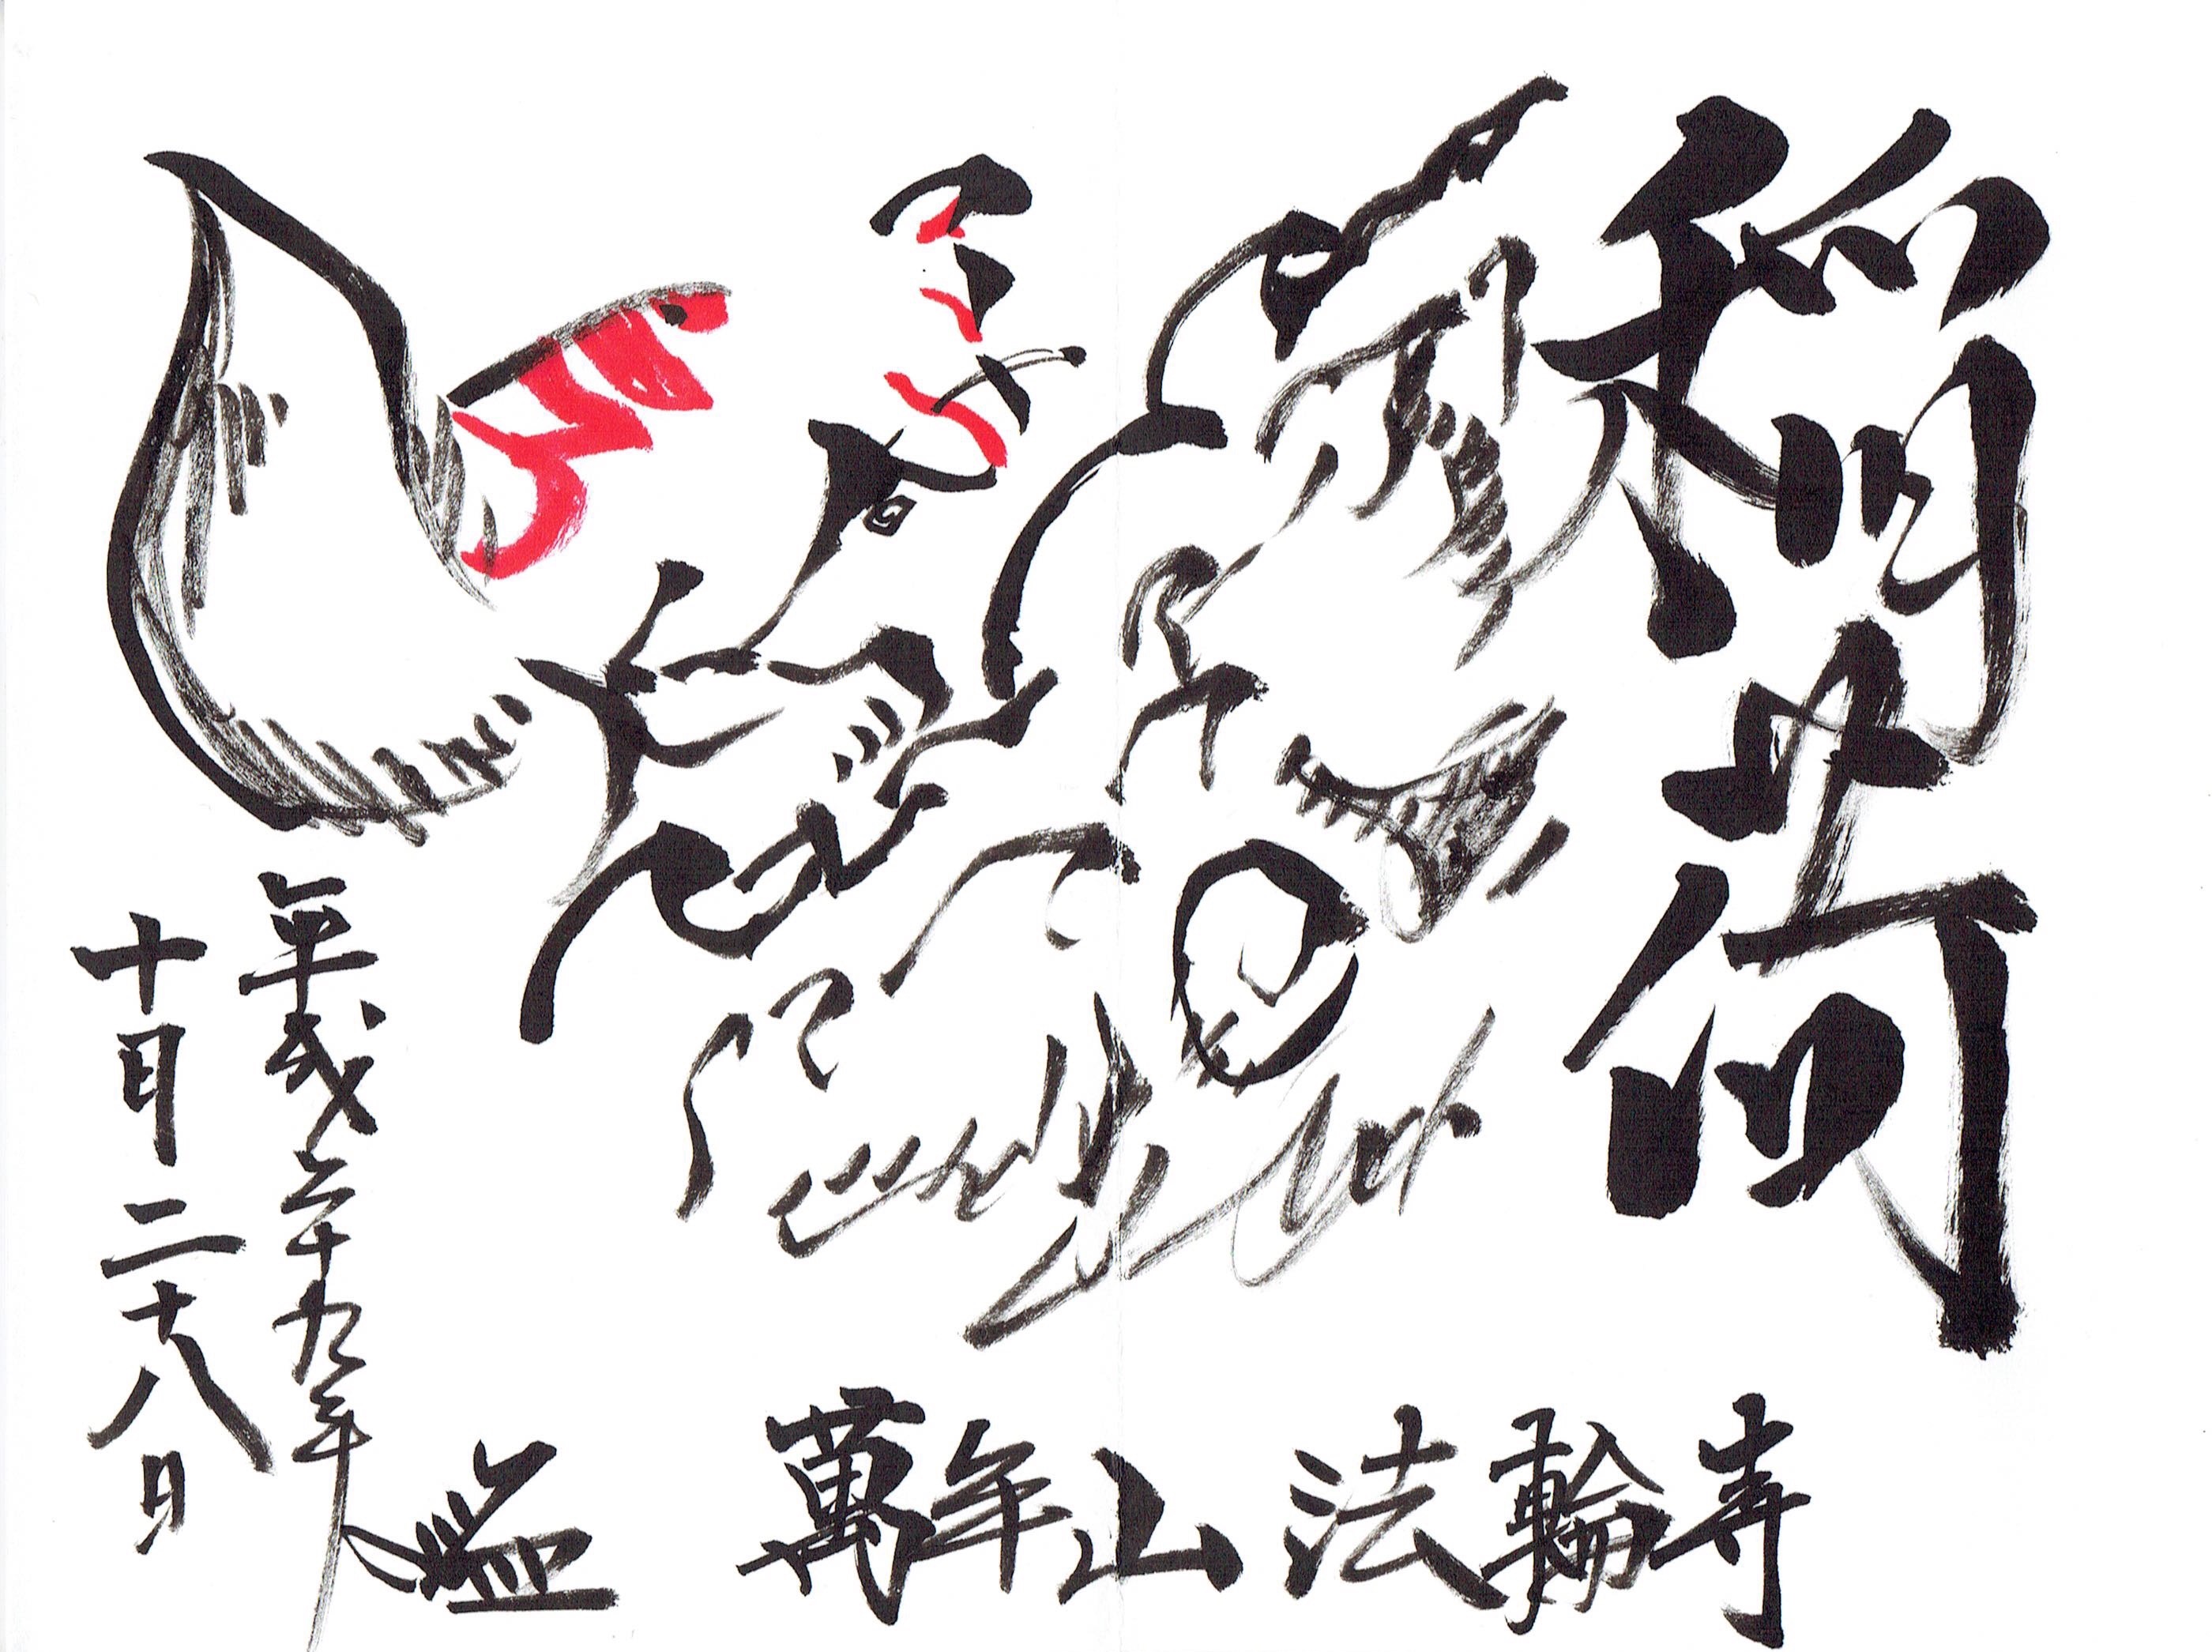 稲荷
萬年山 法輪寺
平成二十九年
十月二十八日